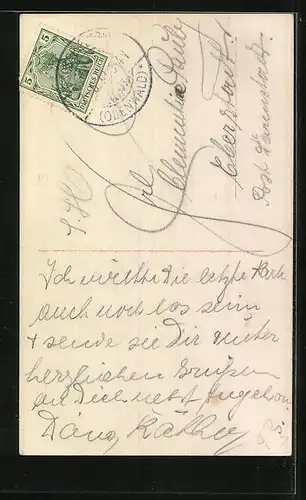 5
DEUTSCHES REICH
(ODENWALD)
Frl.
Clementine
Eberstadt
Post Darmstadt
Ich wollte die letzte Karte
auch noch los sein
+ sende sie Dir unter
herzlichen Grüßen
an Dich nebst Angehör.
Käthy